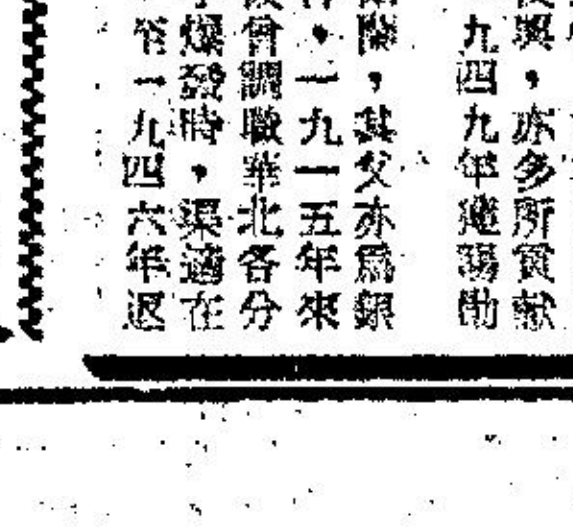 復興，亦多所貢献
九四九年應
蘭，其父亦為銀
，一九一五年來
曾調職華北各分
爆發時，渠適在
一九四六年退